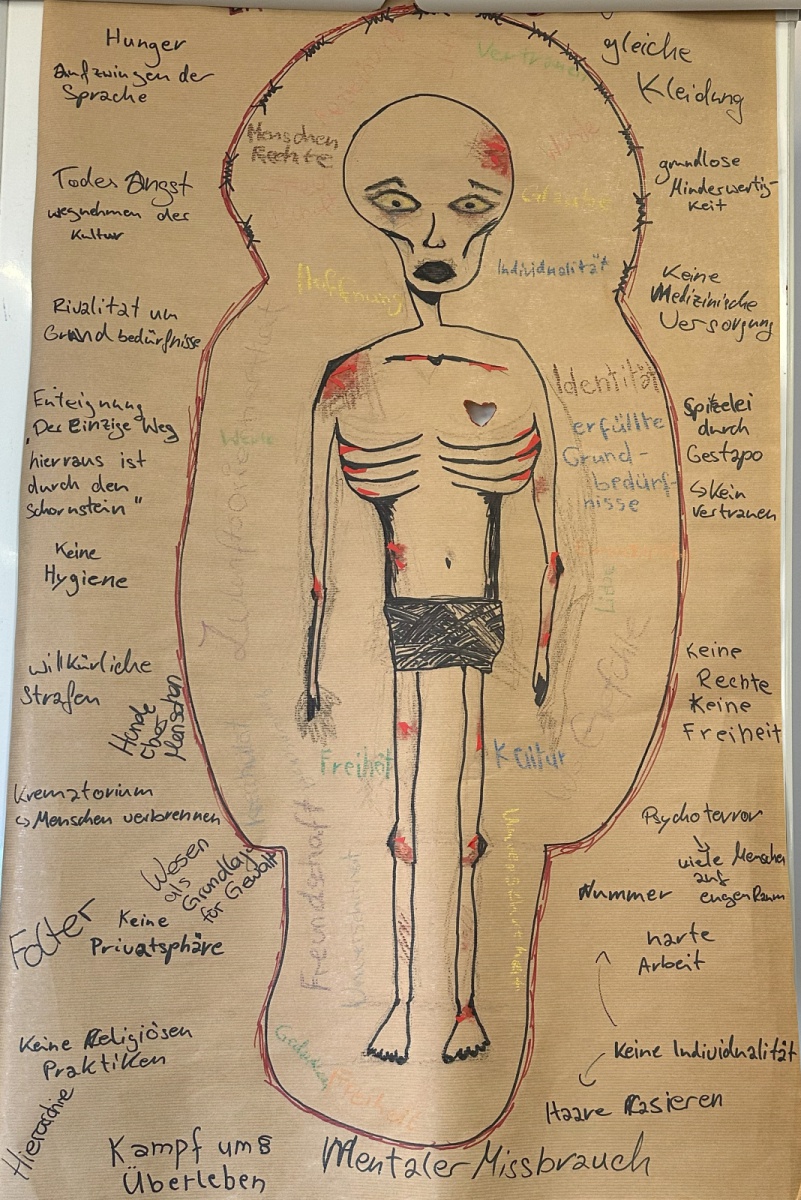 Hunger
Aufzwingen der
Sprache
Todes Angst
wegnehmen der
Kultur
Rivalität um
Grundbedürfnisse
Enteignung
"Der Einzige Weg
hierraus ist
durch den
Schornstein"
Keine
Hygiene
willkürliche
Strafen
Hunde
über
Menschen
Krematorium
↳ Menschen verbrennen
Wesen
als
Grundlage
für Gewalt
Folter
Keine
Privatsphäre
Keine Religiösen
Praktiken
Hierarchie
Kampf ums
Überleben
Mentaler Missbrauch
Vertrauen
Menschen
Rechte
Glaube
Hoffnung
Individualität
Identität
Werte
erfüllte
Grund-
bedürf-
nisse
Liebe
Freiheit
Kultur
Freundschaft
Unversehrtheit
Gedanken
gleiche
Kleidung
grundlose
Minderwertig-
keit
Keine
Medizinische
Versorgung
Spitzelei
durch
Gestapo
↳ Kein
Vertrauen
Keine
Rechte
Keine
Freiheit
Psychoterror
↳ viele Menschen
auf
engen Raum
Nummer
harte
Arbeit
Keine Individualität
Haare Rasieren